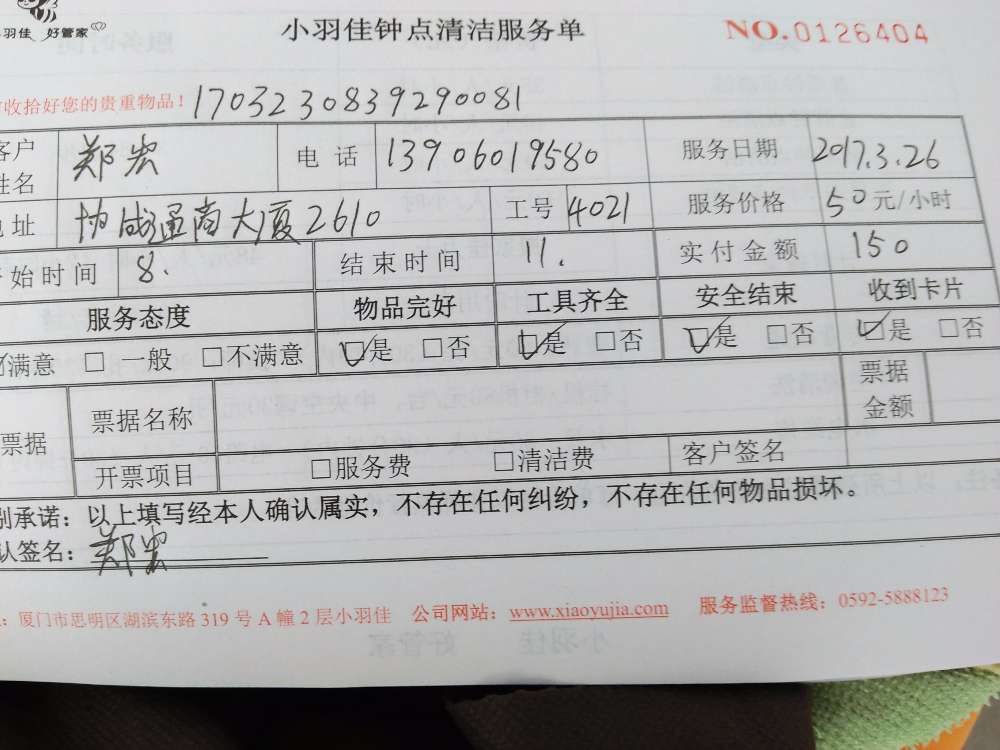 小羽佳 好管家
小羽佳钟点清洁服务单
NO.0126404
收拾好您的贵重物品! 1703230839290081
客户姓名 郑宏 电话 13906019580 服务日期 2017.3.26
地址 协成通商大厦2610 工号 4021 服务价格 50元/小时
开始时间 8. 结束时间 11. 实付金额 150
服务态度 物品完好 工具齐全 安全结束 收到卡片
☑满意 □ 一般 □不满意 ☑是 □否 ☑是 □否 ☑是 □否 ☑是 □否
票据 票据名称 票据金额
开票项目 □服务费 □清洁费 客户签名
别承诺：以上填写经本人确认属实，不存在任何纠纷，不存在任何物品损坏。
认签名：郑宏
：厦门市思明区湖滨东路 319 号 A 幢 2 层小羽佳 公司网站：www.xiaoyujia.com 服务监督热线：0592-5888123